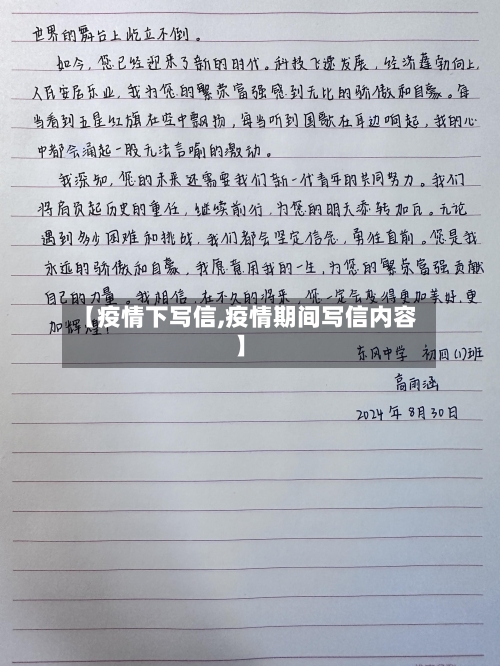 世界的舞台上屹立不倒。
如今,您已经迎来了新的时代。科技飞速发展,经济蓬勃向上,
人民安居乐业,我为您的繁荣富强感到无比的骄傲和自豪。每
当看到五星红旗在空中飘扬,每当听到国歌在耳边响起,我的心
中都会涌起一股无法言喻的激动。
我深知,您的未来还需要我们新一代青年的共同努力。我们
将肩负起历史的重任,继续前行,为您的明天添砖加瓦。无论
遇到多少困难和挑战,我们都会坚定信念,勇往直前。您是我
永远的骄傲和自豪,我愿意用我的一生,为您的繁荣富强贡献
自己的力量。我相信,在不久的将来,您一定会变得更加美好,更
加辉煌!
【疫情下写信,疫情期间写信内容
】
东风中学 初四(1)班
高雨涵
2024年8月30日